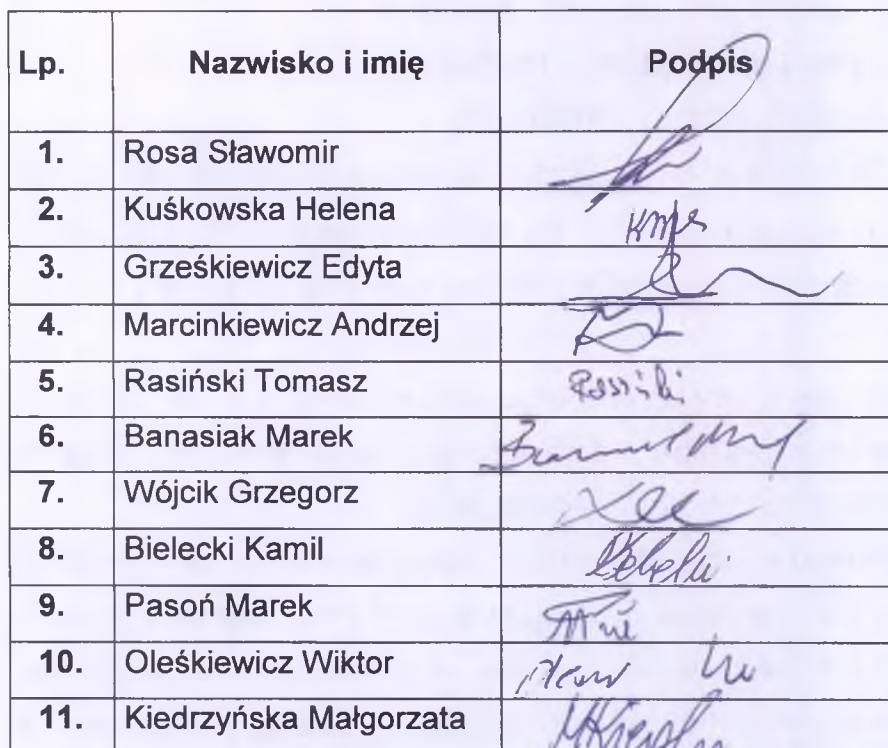 Lp. Nazwisko i imię Podpis
1. Rosa Sławomir
2. Kuśkowska Helena
3. Grześkiewicz Edyta
4. Marcinkiewicz Andrzej
5. Rasiński Tomasz
6. Banasiak Marek
7. Wójcik Grzegorz
8. Bielecki Kamil
9. Pasoń Marek
10. Oleśkiewicz Wiktor
11. Kiedrzyńska Małgorzata